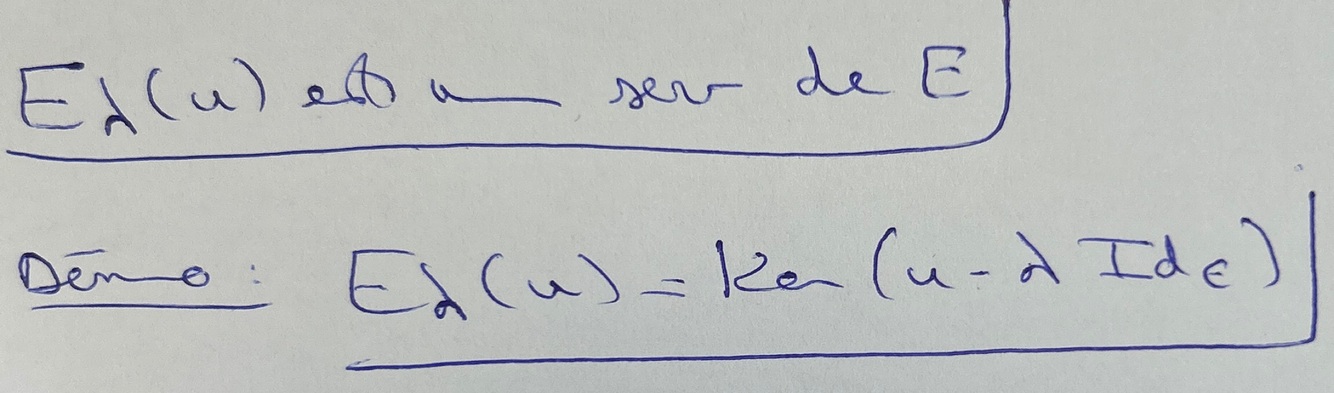 Eλ(u) est un sev de E
Démo : Eλ(u) = Ker (u - λ Id_E)